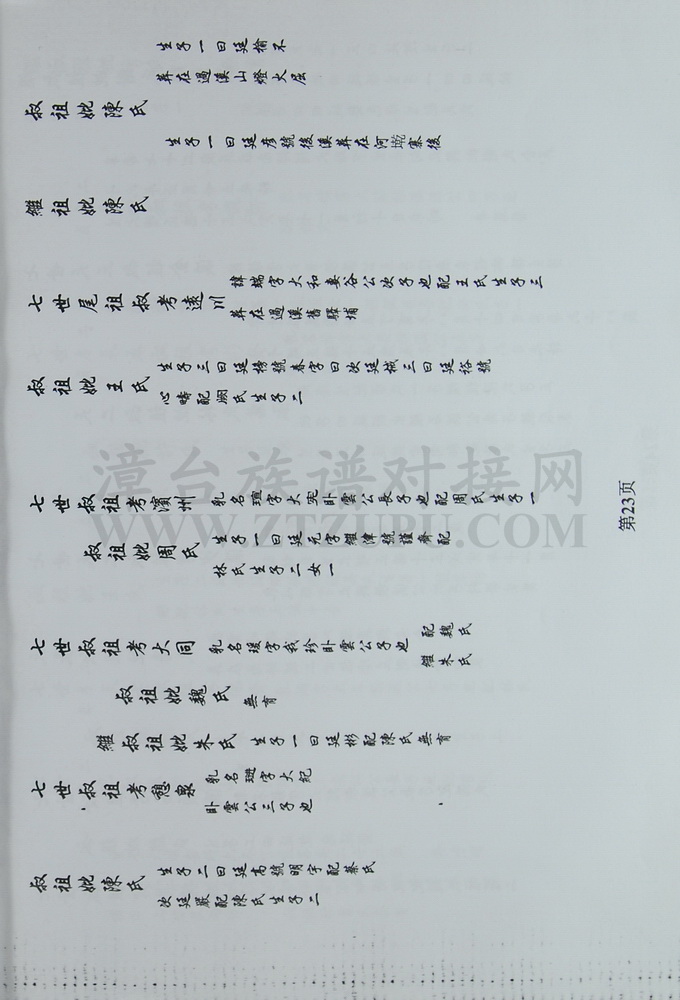 生子一曰廷榆不
葬在過溪山燈火屈
叔祖妣陳氏
生子一曰廷彥號後溪葬在何墘寨後
繼祖妣陳氏
七世尾祖叔考遠川
諱瑞字大和妻谷公次子也配王氏生子三
葬在過溪舊驛埔
叔祖妣王氏
生子三曰廷楊號春宇曰次廷械三曰廷裕號
心疇配嫺氏生子二
七世叔祖考濱州
乳名瑄字大宪卧雲公長子也配周氏生子一
叔祖妣周氏
生子一曰廷元字繼潭號謹齊配
林氏生子二女一
七世叔祖考大同
乳名瑗字我珍卧雲公子也
配魏氏
繼朱氏
叔祖妣魏氏
無育
繼叔祖妣朱氏
生子一曰廷彬配陳氏無育
七世叔祖考憩泉
乳名璡字大紀
卧雲公三子也
叔祖妣陳氏
生子二曰廷高號明宇配蔡氏
次廷嚴配陳氏生子二
第23页
漳台族谱对接网
WWW.ZTZUPU.COM